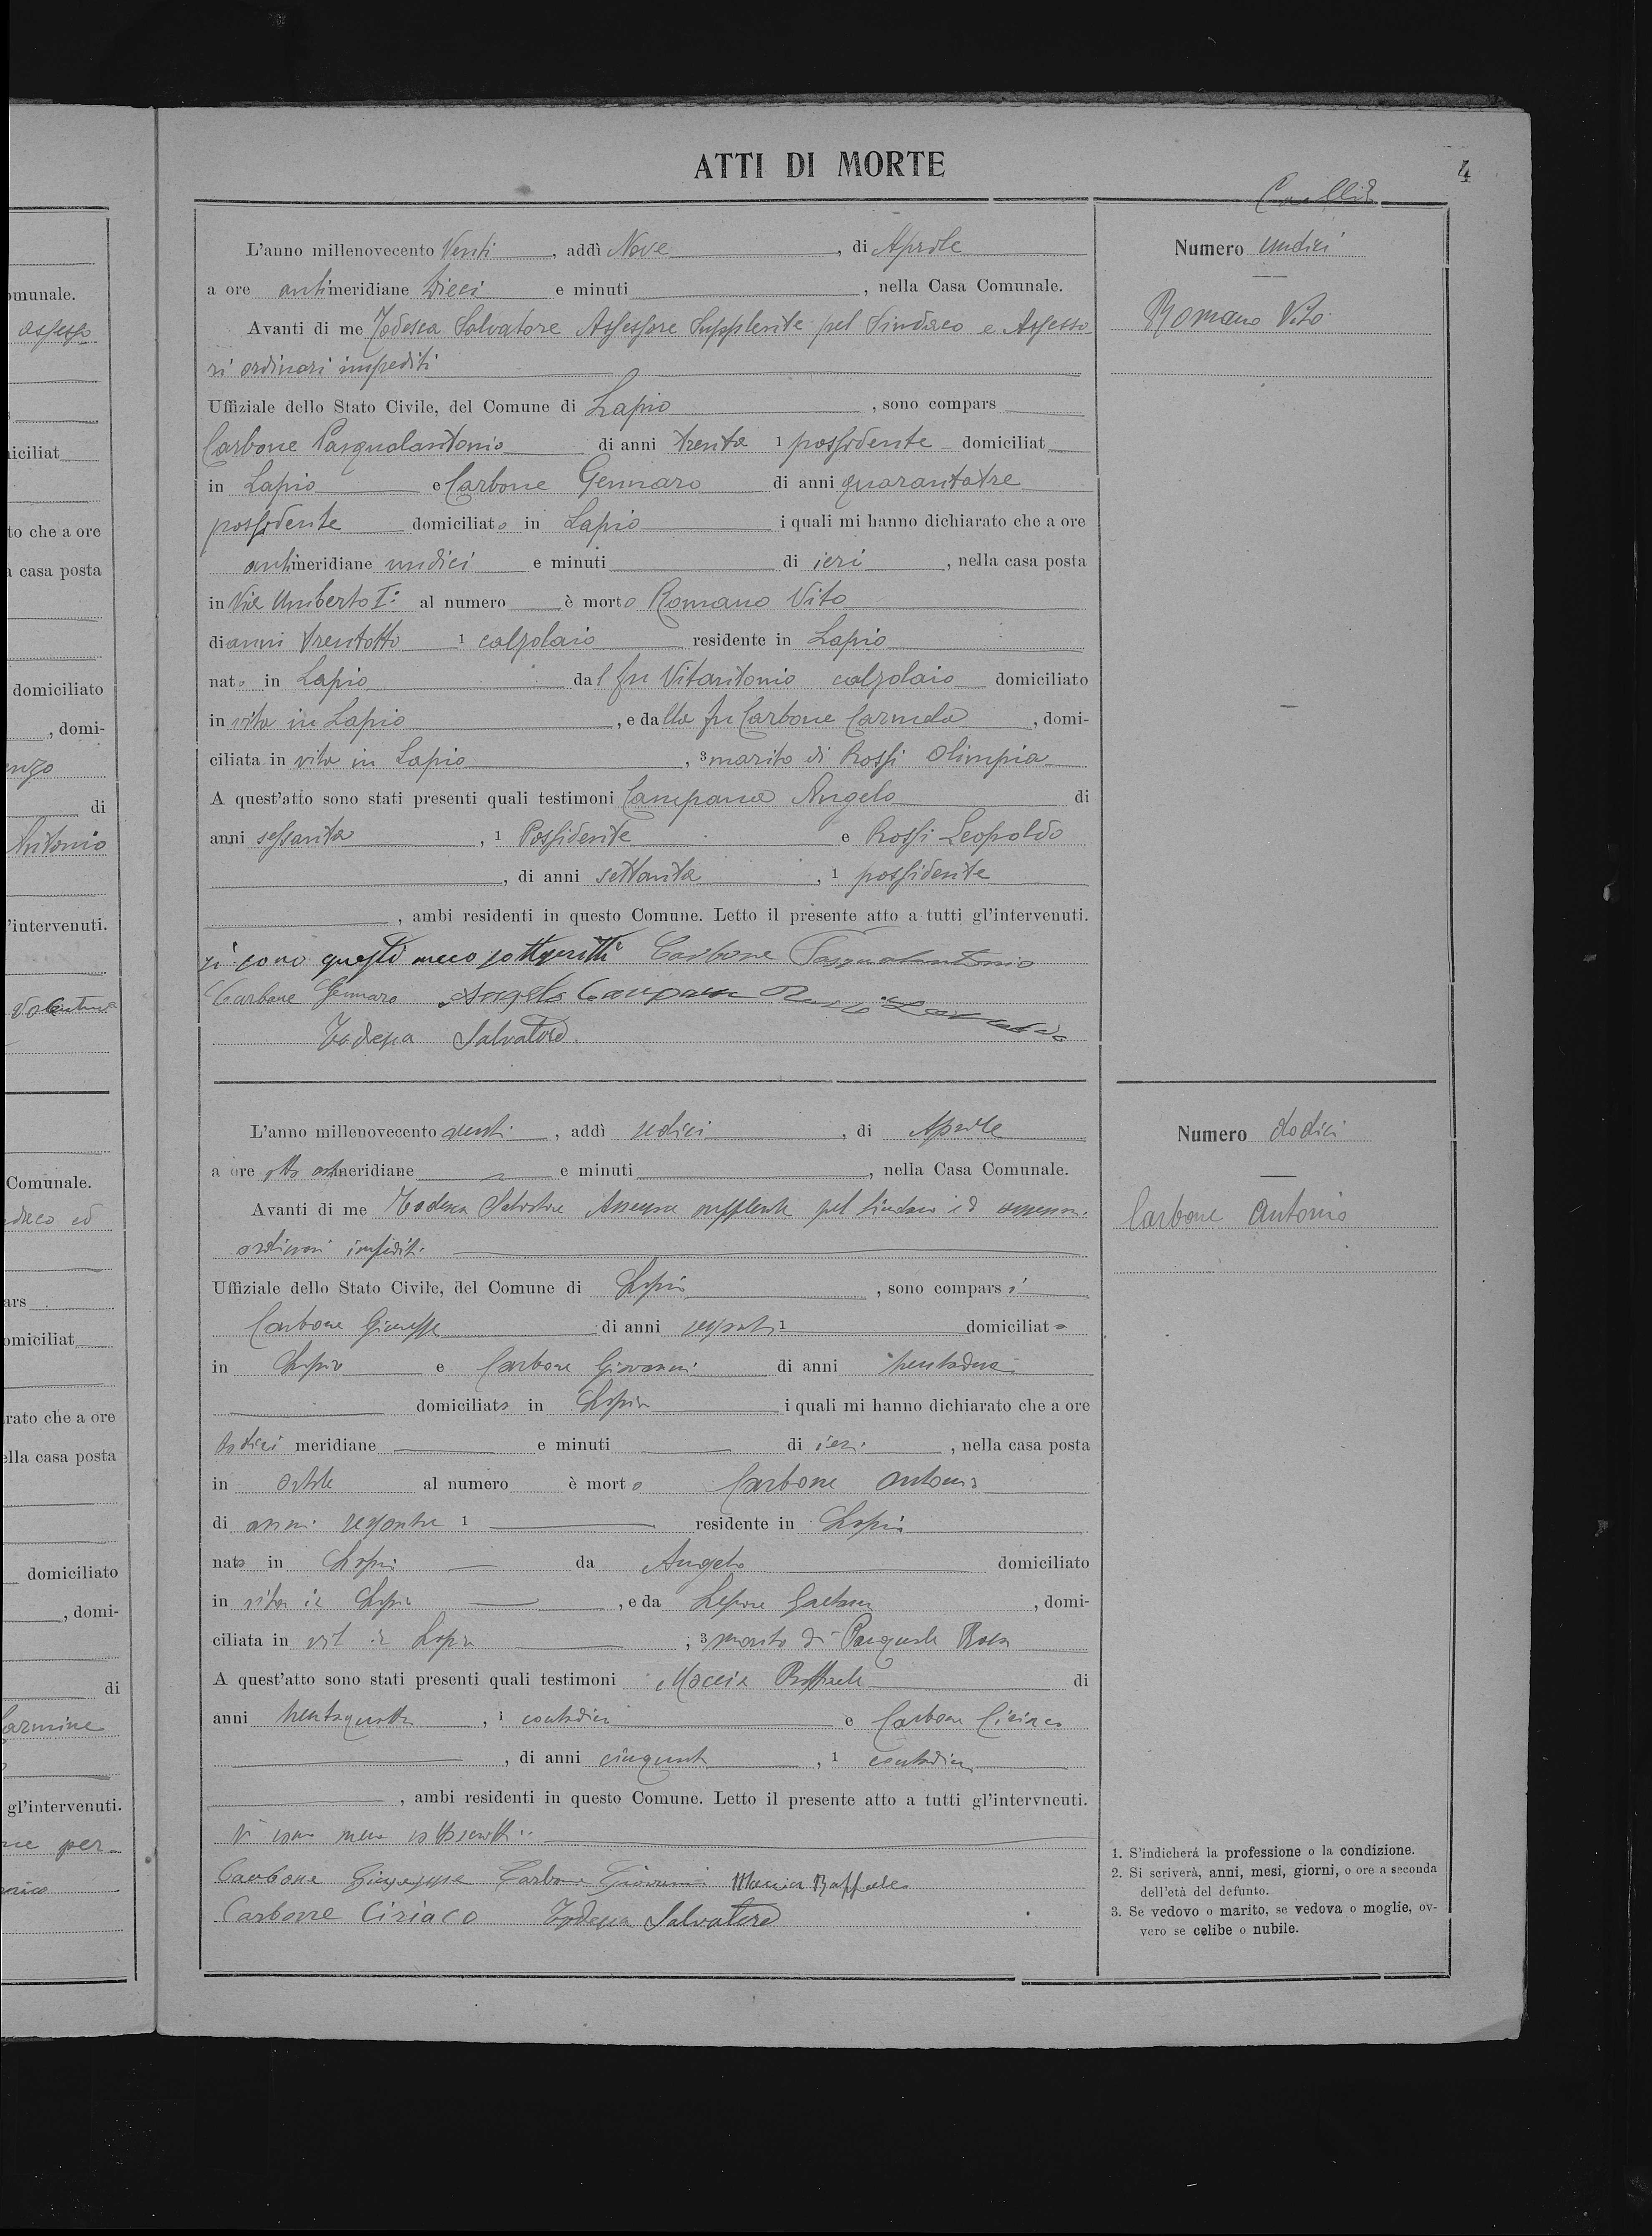 ATTI DI MORTE
4
omunale.
assesso
iciliat
to che a ore
a casa posta
domiciliato
, domi-
nzo
di
Antonio
'intervenuti.
Comunale.
ndaco ed
ars
omiciliat
rato che a ore
ella casa posta
domiciliato
, domi-
di
Carmine
gl'intervenuti.
me per
L'anno millenovecento Venti, addì Nove, di Aprile
a ore antimeridiane Dieci e minuti, nella Casa Comunale.
Avanti di me Todesca Salvatore Assessore Supplente pel Sindaco e Assesso
ri ordinari impediti
Uffiziale dello Stato Civile, del Comune di Lapio, sono compars
Carbone Pasqualantonio di anni trenta 1 possidente domiciliat
in Lapio e Carbone Gennaro di anni quarantatre
possidente domiciliato in Lapio i quali mi hanno dichiarato che a ore
antimeridiane undici e minuti di ieri, nella casa posta
in Via Umberto I° al numero è morto Romano Vito
di anni trentotto 1 calzolaio residente in Lapio
nato in Lapio dal fu Vitantonio calzolaio domiciliato
in vita in Lapio, e dalla fu Carbone Carmela, domi-
ciliata in vita in Lapio, 3 marito di Rossi Olimpia
A quest'atto sono stati presenti quali testimoni Campana Angelo di
anni sessanta, 1 Possidente e Rossi Leopoldo
, di anni settanta, 1 possidente
, ambi residenti in questo Comune. Letto il presente atto a tutti gl'intervenuti.
si sono questi meco sottoscritti Carbone Pasqualantonio
Carbone Gennaro Angelo Campana Rossi Leopoldo
Todesca Salvatore
Numero undici
Romano Vito
L'anno millenovecento venti, addì sedici, di Aprile
a ore otto antimeridiane e minuti, nella Casa Comunale.
Avanti di me Todesca Salvatore Assessore supplente pel Sindaco ed assessori
ordinari impediti
Uffiziale dello Stato Civile, del Comune di Lapio, sono comparsi
Carbone Giuseppe di anni 1 domiciliato
in Lapio e Carbone Giovanni di anni trentadue
domiciliato in Lapio i quali mi hanno dichiarato che a ore
dodici meridiane e minuti di ieri, nella casa posta
in al numero è morto Carbone Antonio
di anni 1 residente in Lapio
nato in Lapio da Angelo domiciliato
in vita in Lapio, e da Lepore Gaetana, domi-
ciliata in vita in Lapio, 3 marito di Pasquale Rosa
A quest'atto sono stati presenti quali testimoni Maccia Raffaele di
anni trentaquattro, 1 contadino e Carbone Ciriaco
, di anni cinquanta, 1 contadino
, ambi residenti in questo Comune. Letto il presente atto a tutti gl'intervneuti.
si sono meco sottoscritti
Carbone Giuseppe Carbone Giovanni Maccia Raffaele
Carbone Ciriaco Todesca Salvatore
Numero dodici
Carbone Antonio
1. S'indicherà la professione o la condizione.
2. Si scriverà, anni, mesi, giorni, o ore a seconda
dell'età del defunto.
3. Se vedovo o marito, se vedova o moglie, ov-
vero se celibe o nubile.